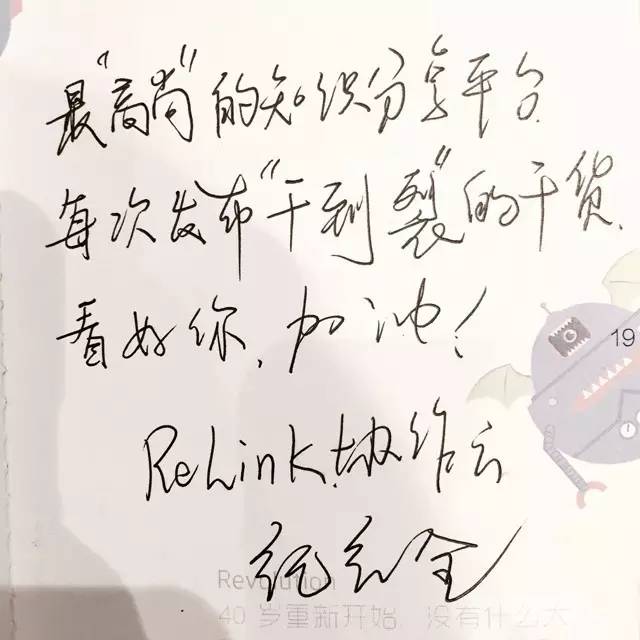 最"高尚"的知识分享平台.
每次发布"干到裂"的干货.
看好你,加油!
19
ReLink.协作云
Revolution
40 岁重新开始, 没有什么大